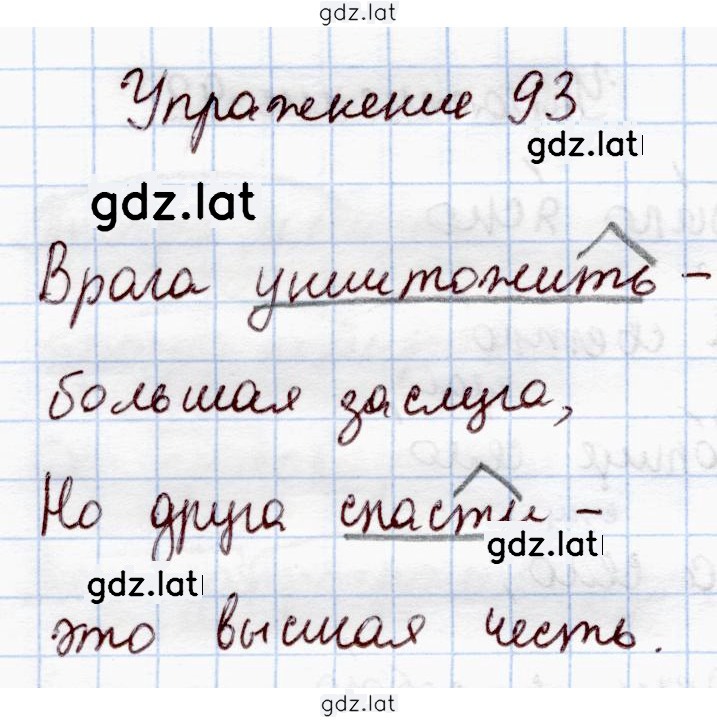 gdz.lat
Упражнение 93
gdz.lat
gdz.lat
Врага уништожить –
большая заслуга,
Но друга спасти –
gdz.lat
gdz.lat
это высшая честь.
gdz.lat